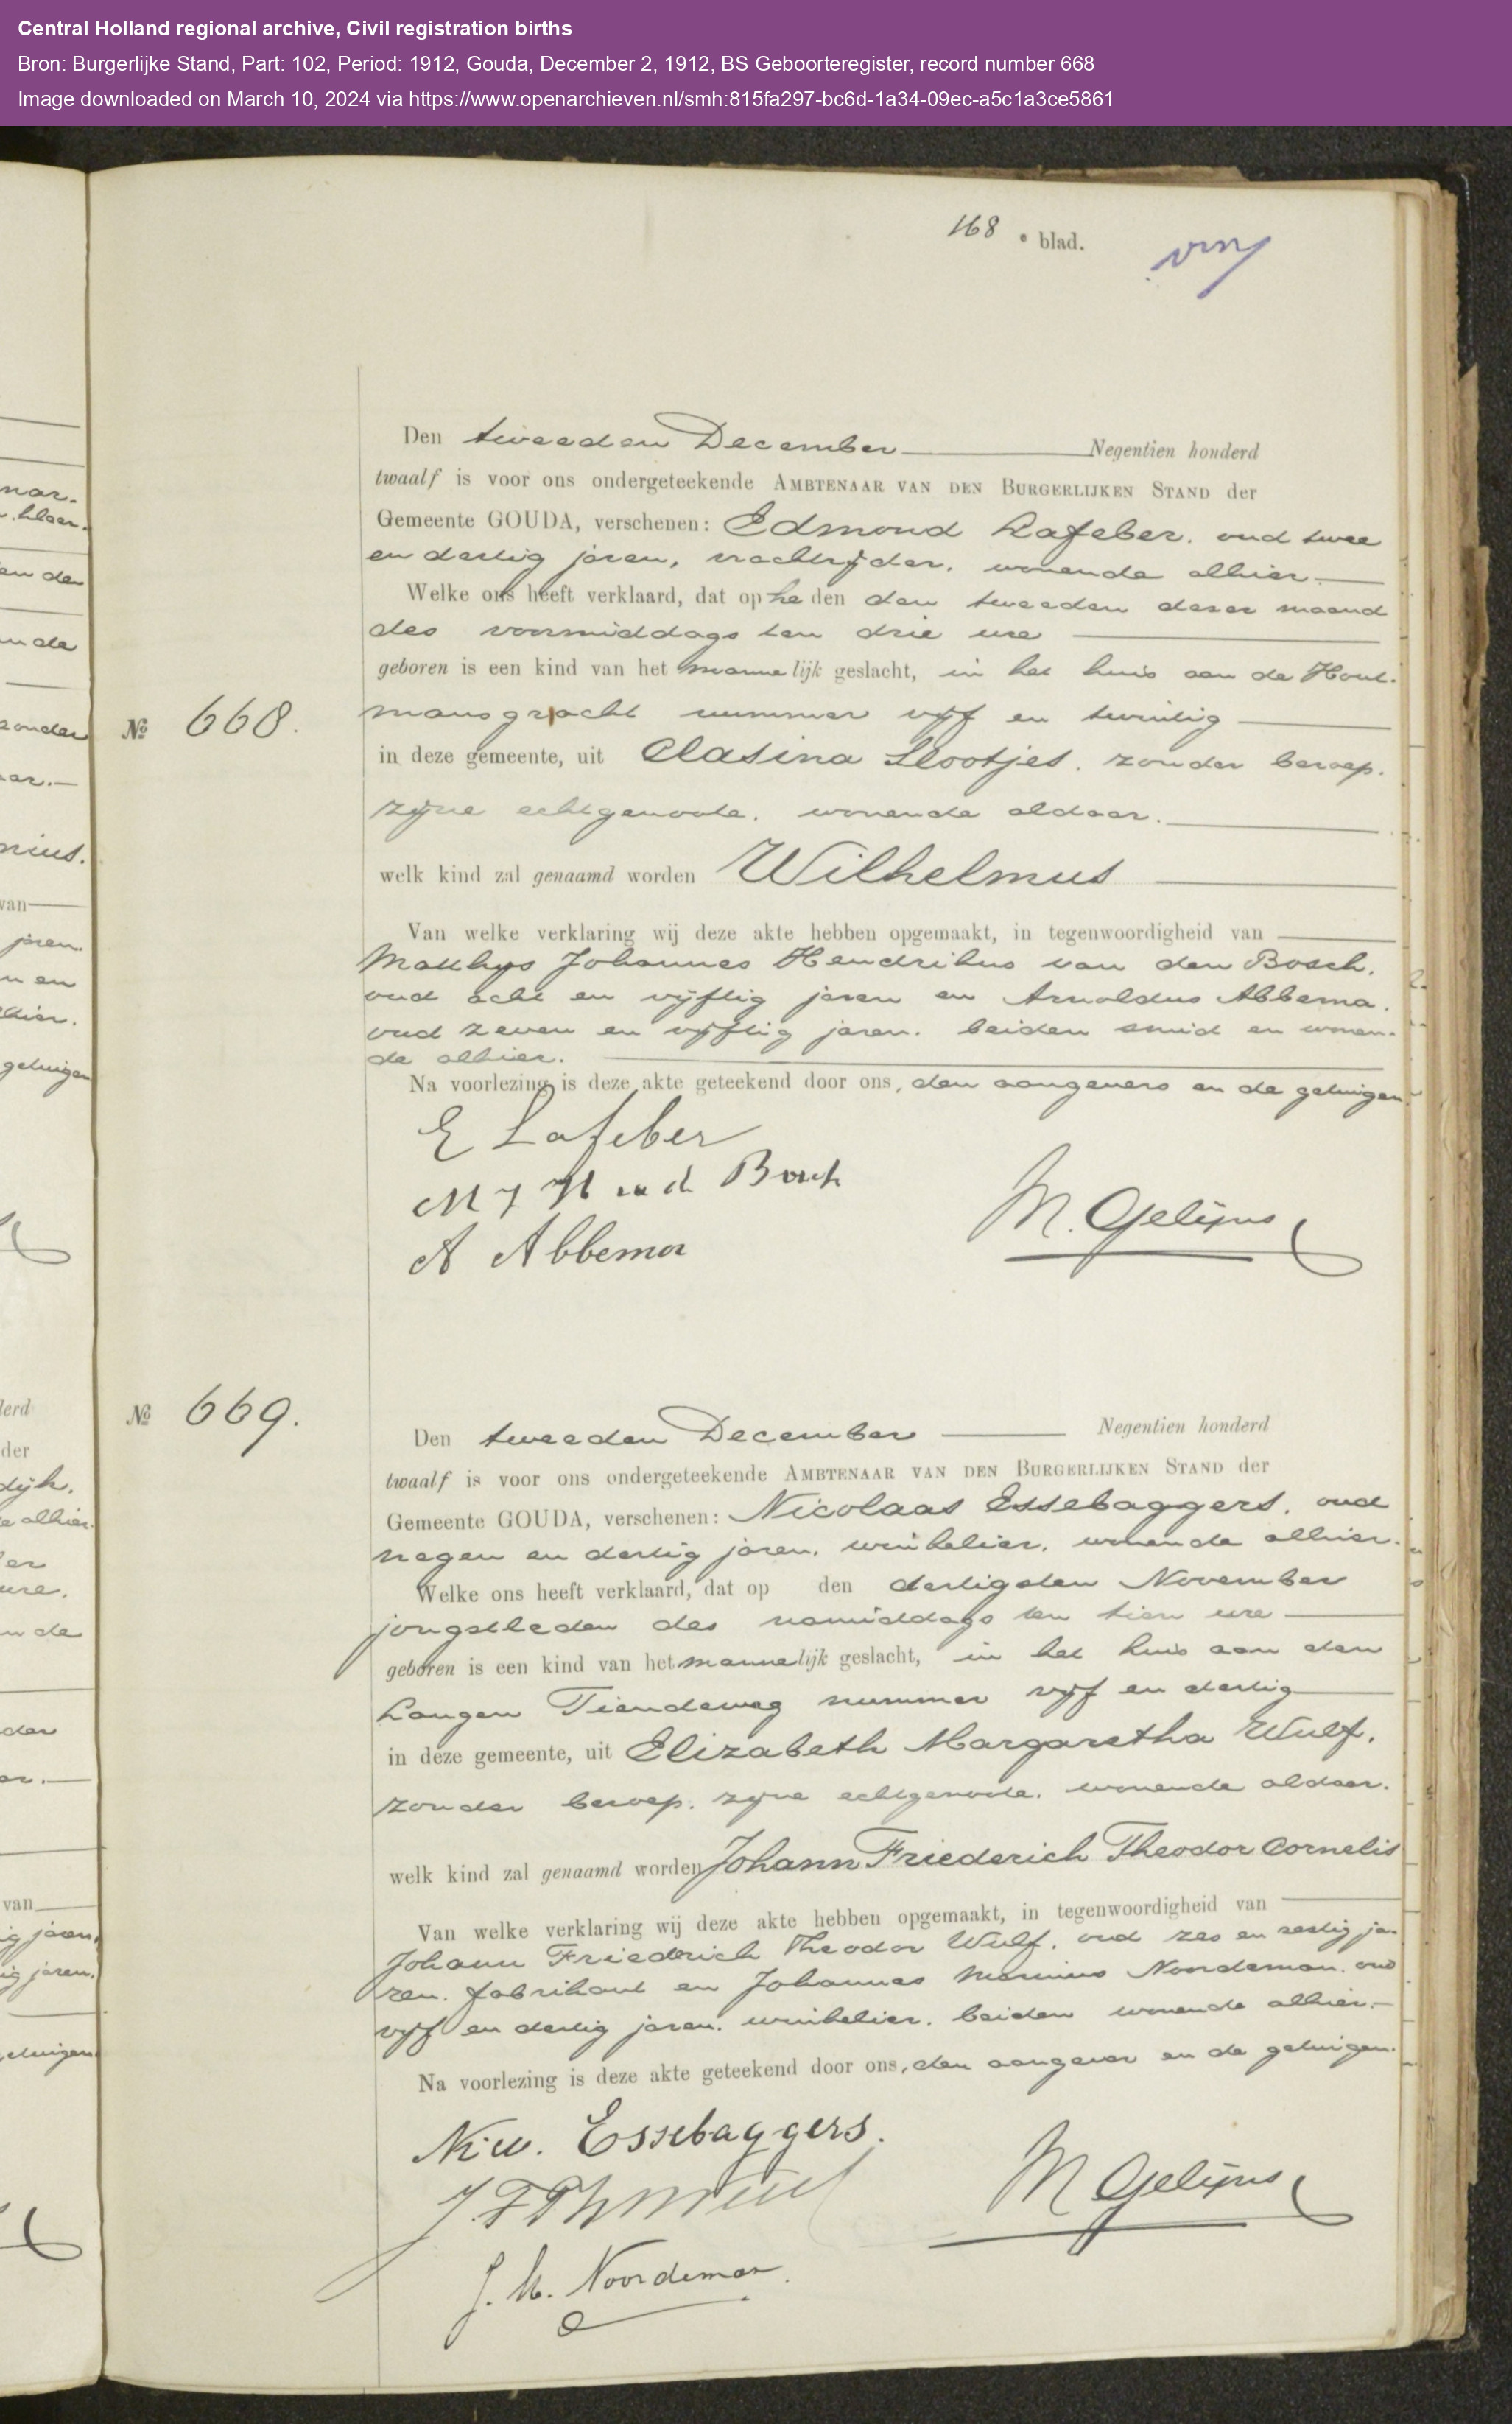 Central Holland regional archive, Civil registration births
Bron: Burgerlijke Stand, Part: 102, Period: 1912, Gouda, December 2, 1912, BS Geboorteregister, record number 668
Image downloaded on March 10, 2024 via https://www.openarchieven.nl/smh:815fa297-bc6d-1a34-09ec-a5c1a3ce5861
168 e blad.
Den tweeden December Negentien honderd
twaalf is voor ons ondergeteekende AMBTENAAR VAN DEN BURGERLIJKEN STAND der
Gemeente GOUDA, verschenen: Edmond Lafeber, oud twee
en dertig jaren, vrachtrijder, wonende alhier.
Welke ons heeft verklaard, dat op heden den tweeden dezer maand
des voormiddags ten drie ure
geboren is een kind van het mannelijk geslacht, in het huis aan de Hout-
mansgracht nummer vijf en twintig
No 668.
in deze gemeente, uit Clasina Slootjes, zonder beroep,
zijne echtgenoote, wonende aldaar.
welk kind zal genaamd worden Wilhelmus
Van welke verklaring wij deze akte hebben opgemaakt, in tegenwoordigheid van
Matthys Johannes Hendrikus van den Bosch,
oud acht en vijftig jaren en Arnoldus Abbema,
oud zeven en vijftig jaren, beiden smid en wonen-
de alhier.
Na voorlezing is deze akte geteekend door ons, den aangever en de getuigen.
E Lafeber
M J H v d Bosch
A Abbema
M. Gelijns
No 669.
Den tweeden December Negentien honderd
twaalf is voor ons ondergeteekende AMBTENAAR VAN DEN BURGERLIJKEN STAND der
Gemeente GOUDA, verschenen: Nicolaas Essebaggers, oud
negen en dertig jaren, winkelier, wonende alhier.
Welke ons heeft verklaard, dat op den dertigsten November
jongstleden des namiddags ten tien ure
geboren is een kind van het mannelijk geslacht, in het huis aan den
Langen Tiendeweg nummer vijf en dertig
in deze gemeente, uit Elizabeth Margaretha Wulf,
zonder beroep, zijne echtgenoote, wonende aldaar.
welk kind zal genaamd worden Johann Friederich Theodor Cornelis
Van welke verklaring wij deze akte hebben opgemaakt, in tegenwoordigheid van
Johann Friederich Theodor Wulf, oud zes en zestig ja-
ren, fabrikant en Johannes Marinus Noordeman, oud
vijf en dertig jaren, winkelier, beiden wonende alhier.
Na voorlezing is deze akte geteekend door ons, den aangever en de getuigen.
Nic. Essebaggers.
J. F. Th Wulf
J. M. Noordeman.
M Gelijns